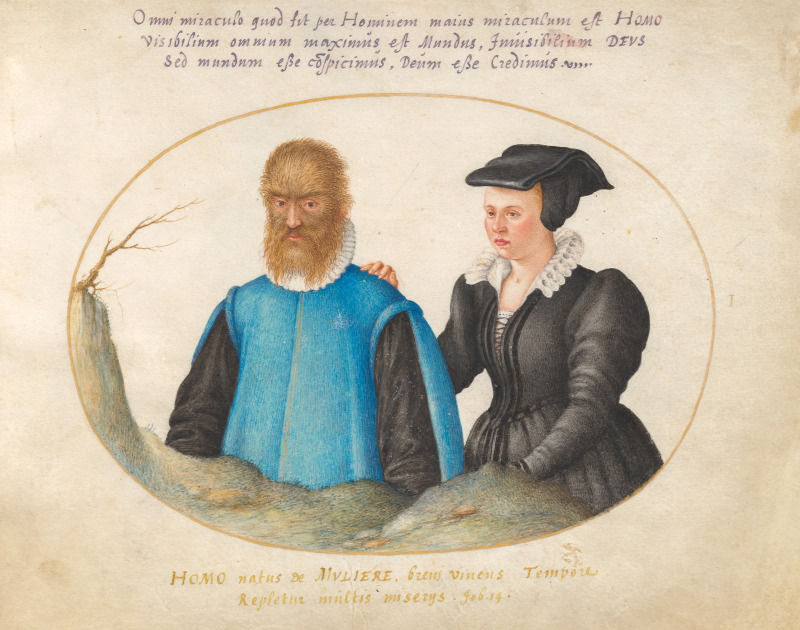 Omni miraculo quod fit per Hominem maius miraculum est HOMO
Visibilium omnium maximus est Mundus, Inuisibilium DEVS
Sed mundum eße cōspicimus, Deum eße Credimus
I
HOMO natus de MVLIERE, breui viuens Tempore
Repletur multis miserijs. Job. 14.